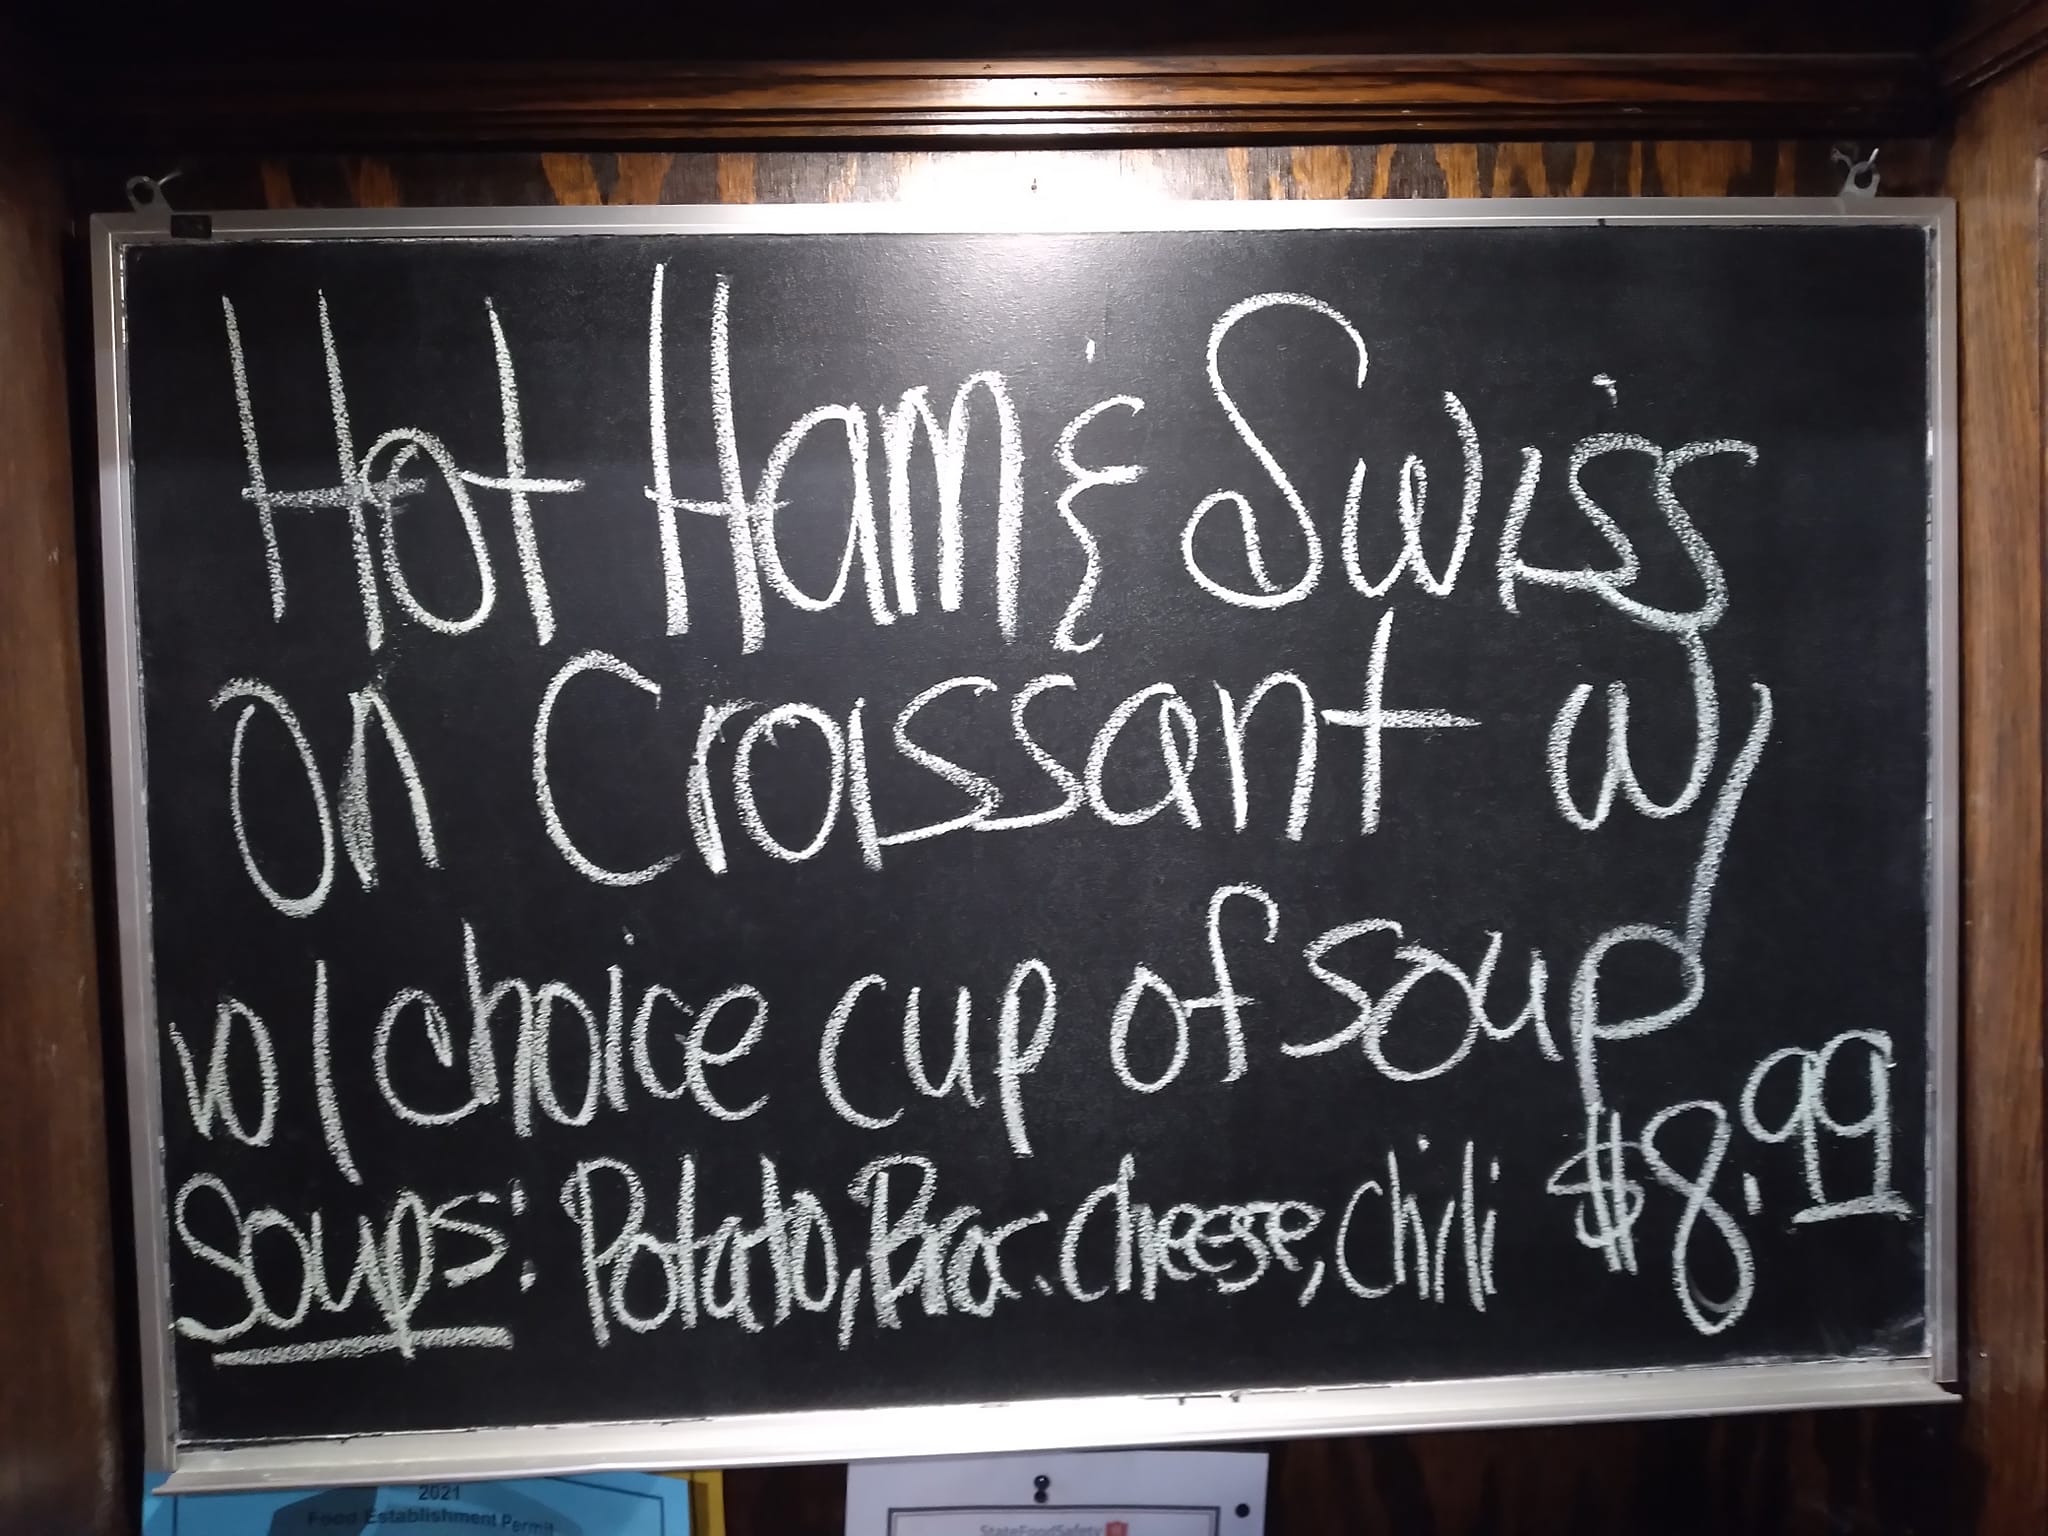 Hot Ham & Swiss
on Croissant w/
w/ choice cup of soup
Soups: Potato, Broc. Cheese, Chili $8.99
2021
Food Establishment Permit
StateFoodSafety